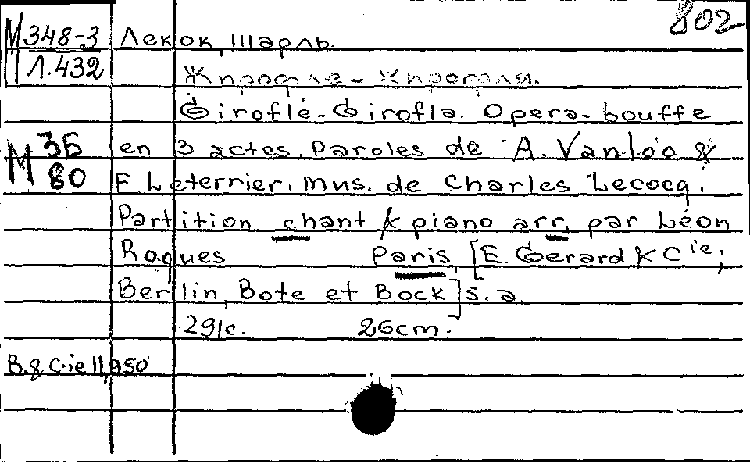 802
М 348-3 Лекок, Шарль.
Л.432 Жирофле-Жирофля.
Giroflé-Girofla. Opera-bouffe
М 36 80 en 3 actes. Paroles de A. Vanloo &
F Leterrier. Mus. de Charles Lecocq.
Partition chant & piano arr. par Léon
Roques Paris [E. Gerard & Cie;
Berlin, Bote et Bock] s. a.
291c. 26cm.
B. & C-ie 11,950